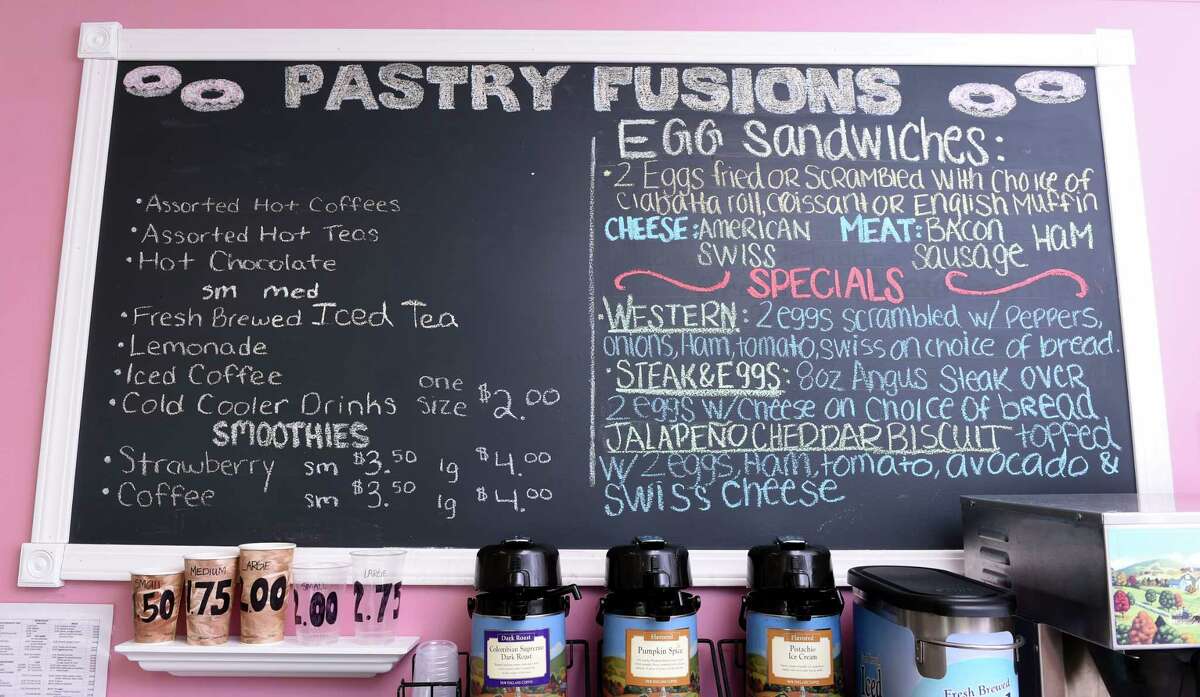 PASTRY FUSIONS
• Assorted Hot Coffees
• Assorted Hot Teas
• Hot Chocolate
sm med
• Fresh Brewed Iced Tea
• Lemonade
• Iced Coffee
• Cold Cooler Drinks one size $2.00
SMOOTHIES
• Strawberry sm $3.50 lg $4.00
• Coffee sm $3.50 lg $4.00
EGG Sandwiches:
• 2 Eggs fried or scrambled with choice of
Ciabatta roll, croissant or English Muffin
CHEESE: AMERICAN MEAT: BACON HAM
SWISS SAUSAGE
SPECIALS
• WESTERN: 2 eggs scrambled w/ peppers,
onions, Ham, tomato, swiss on choice of bread.
• STEAK & EGGS: 8oz Angus Steak over
2 eggs w/cheese on choice of bread
JALAPEÑO CHEDDAR BISCUIT topped
w/ 2 eggs, Ham, tomato, avocado &
swiss cheese
SMALL
.50
MEDIUM
1.75
LARGE
2.00
SMALL
2.00
LARGE
2.75
Dark Roast
Colombian Supremo
Dark Roast
NEW ENGLAND COFFEE
Flavored
Pumpkin Spice
NEW ENGLAND COFFEE
Flavored
Pistachio
Ice Cream
Iced
Fresh Brewed